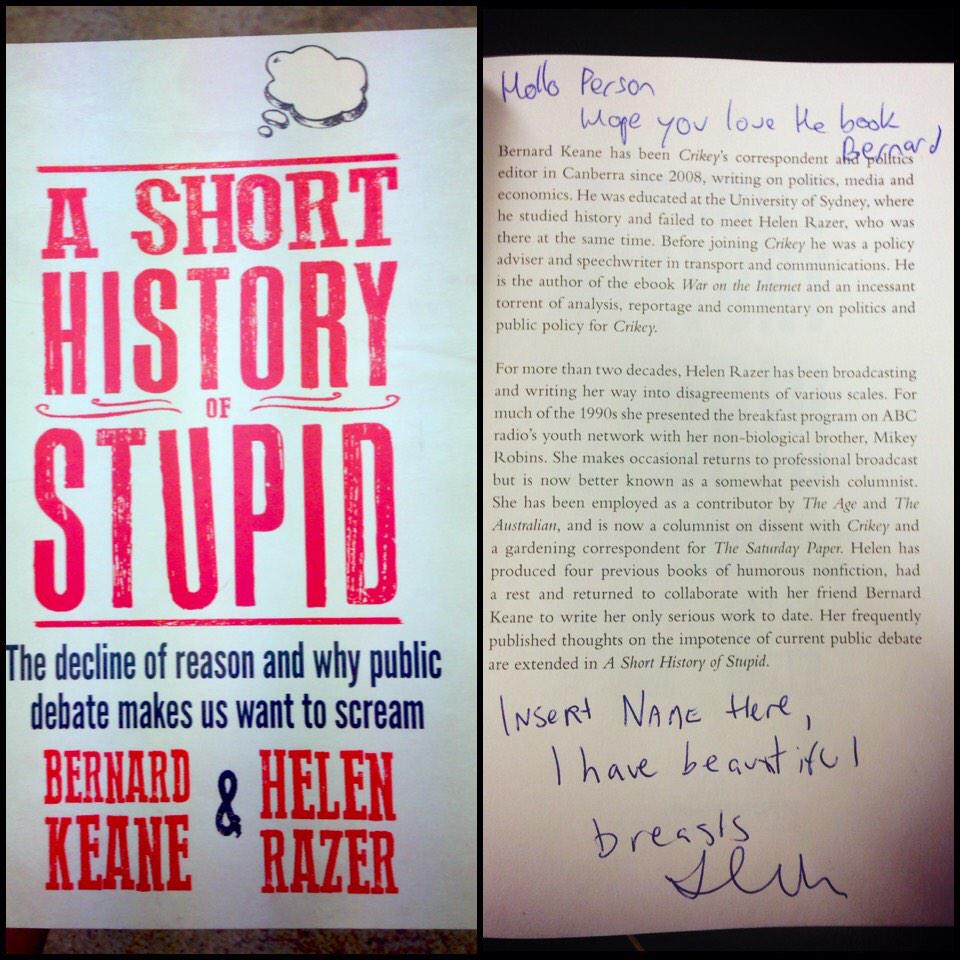 A SHORT
HISTORY
OF
STUPID
The decline of reason and why public
debate makes us want to scream
BERNARD
KEANE
&
HELEN
RAZER
Hello Person
Hope you love the book
Bernard
Bernard Keane has been Crikey's correspondent and politics
editor in Canberra since 2008, writing on politics, media and
economics. He was educated at the University of Sydney, where
he studied history and failed to meet Helen Razer, who was
there at the same time. Before joining Crikey he was a policy
adviser and speechwriter in transport and communications. He
is the author of the ebook War on the Internet and an incessant
torrent of analysis, reportage and commentary on politics and
public policy for Crikey.
For more than two decades, Helen Razer has been broadcasting
and writing her way into disagreements of various scales. For
much of the 1990s she presented the breakfast program on ABC
radio's youth network with her non-biological brother, Mikey
Robins. She makes occasional returns to professional broadcast
but is now better known as a somewhat peevish columnist.
She has been employed as a contributor by The Age and The
Australian, and is now a columnist on dissent with Crikey and
a gardening correspondent for The Saturday Paper. Helen has
produced four previous books of humorous nonfiction, had
a rest and returned to collaborate with her friend Bernard
Keane to write her only serious work to date. Her frequently
published thoughts on the impotence of current public debate
are extended in A Short History of Stupid.
INSERT NAME HERE,
I have beautiful
breasts